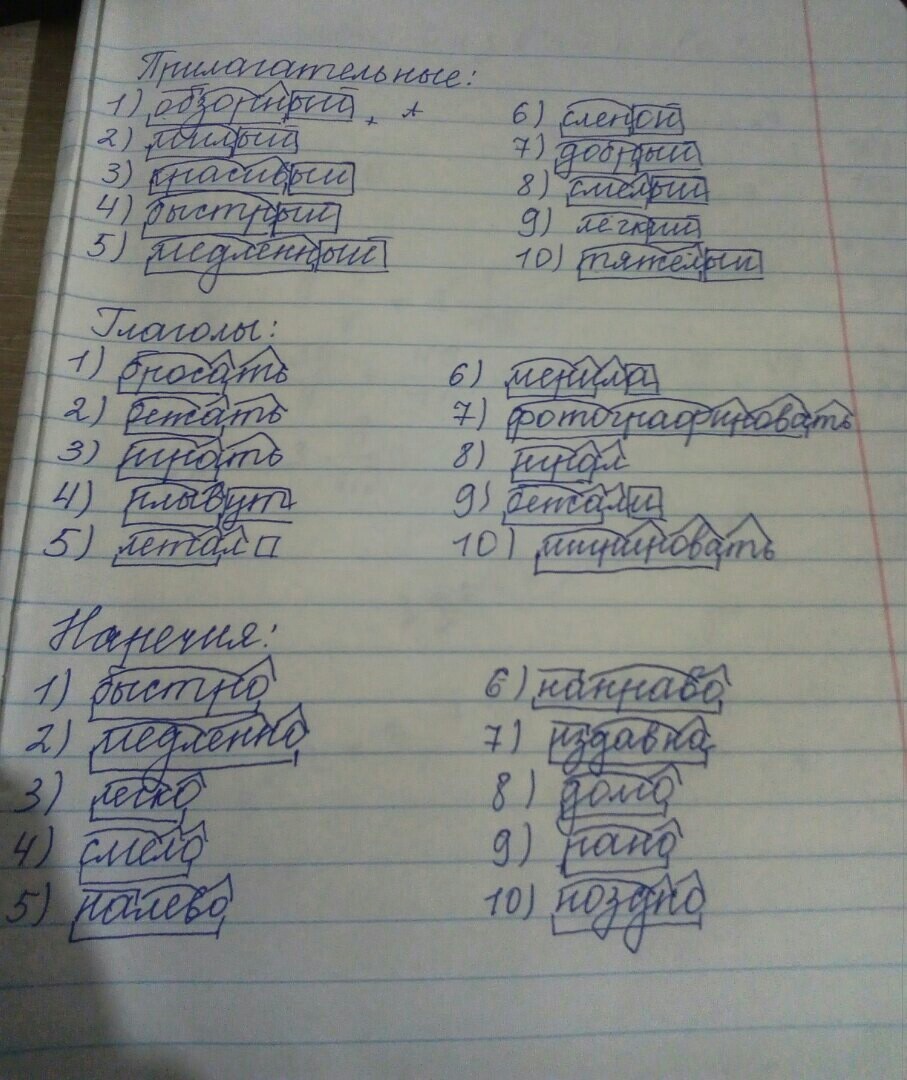 Прилагательные:
1) обзорный
2) милый
3) красивый
4) быстрый
5) медленный
6) слепой
7) добрый
8) смелый
9) лёгкий
10) тяжелый
Глаголы:
1) бросать
2) бежать
3)
4) плывут
5) летал
6) мерила
7) фотографировать
8)
9) бежали
10) минировать
Наречия:
1) быстро
2) медленно
3) легко
4) смело
5) налево
6) направо
7) издавна
8) домо
9) рано
10) поздно